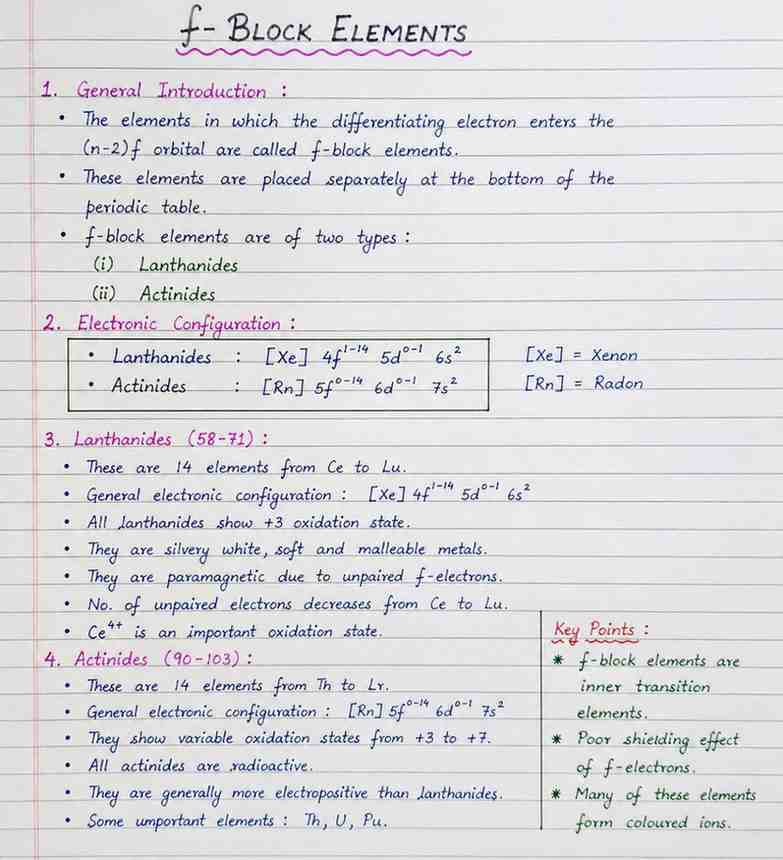 f- BLOCK ELEMENTS
1. General Introduction :
• The elements in which the differentiating electron enters the
(n-2)f orbital are called f-block elements.
• These elements are placed separately at the bottom of the
periodic table.
• f-block elements are of two types :
(i) Lanthanides
(ii) Actinides
2. Electronic Configuration :
• Lanthanides : [Xe] 4f¹⁻¹⁴ 5d⁰⁻¹ 6s²
• Actinides : [Rn] 5f⁰⁻¹⁴ 6d⁰⁻¹ 7s²
[Xe] = Xenon
[Rn] = Radon
3. Lanthanides (58-71) :
• These are 14 elements from Ce to Lu.
• General electronic configuration : [Xe] 4f¹⁻¹⁴ 5d⁰⁻¹ 6s²
• All lanthanides show +3 oxidation state.
• They are silvery white, soft and malleable metals.
• They are paramagnetic due to unpaired f-electrons.
• No. of unpaired electrons decreases from Ce to Lu.
• Ce⁴⁺ is an important oxidation state.
4. Actinides (90-103) :
• These are 14 elements from Th to Lr.
• General electronic configuration : [Rn] 5f⁰⁻¹⁴ 6d⁰⁻¹ 7s²
• They show variable oxidation states from +3 to +7.
• All actinides are radioactive.
• They are generally more electropositive than lanthanides.
• Some umportant elements : Th, U, Pu.
Key Points :
* f-block elements are
inner transition
elements.
* Poor shielding effect
of f-electrons.
* Many of these elements
form coloured ions.